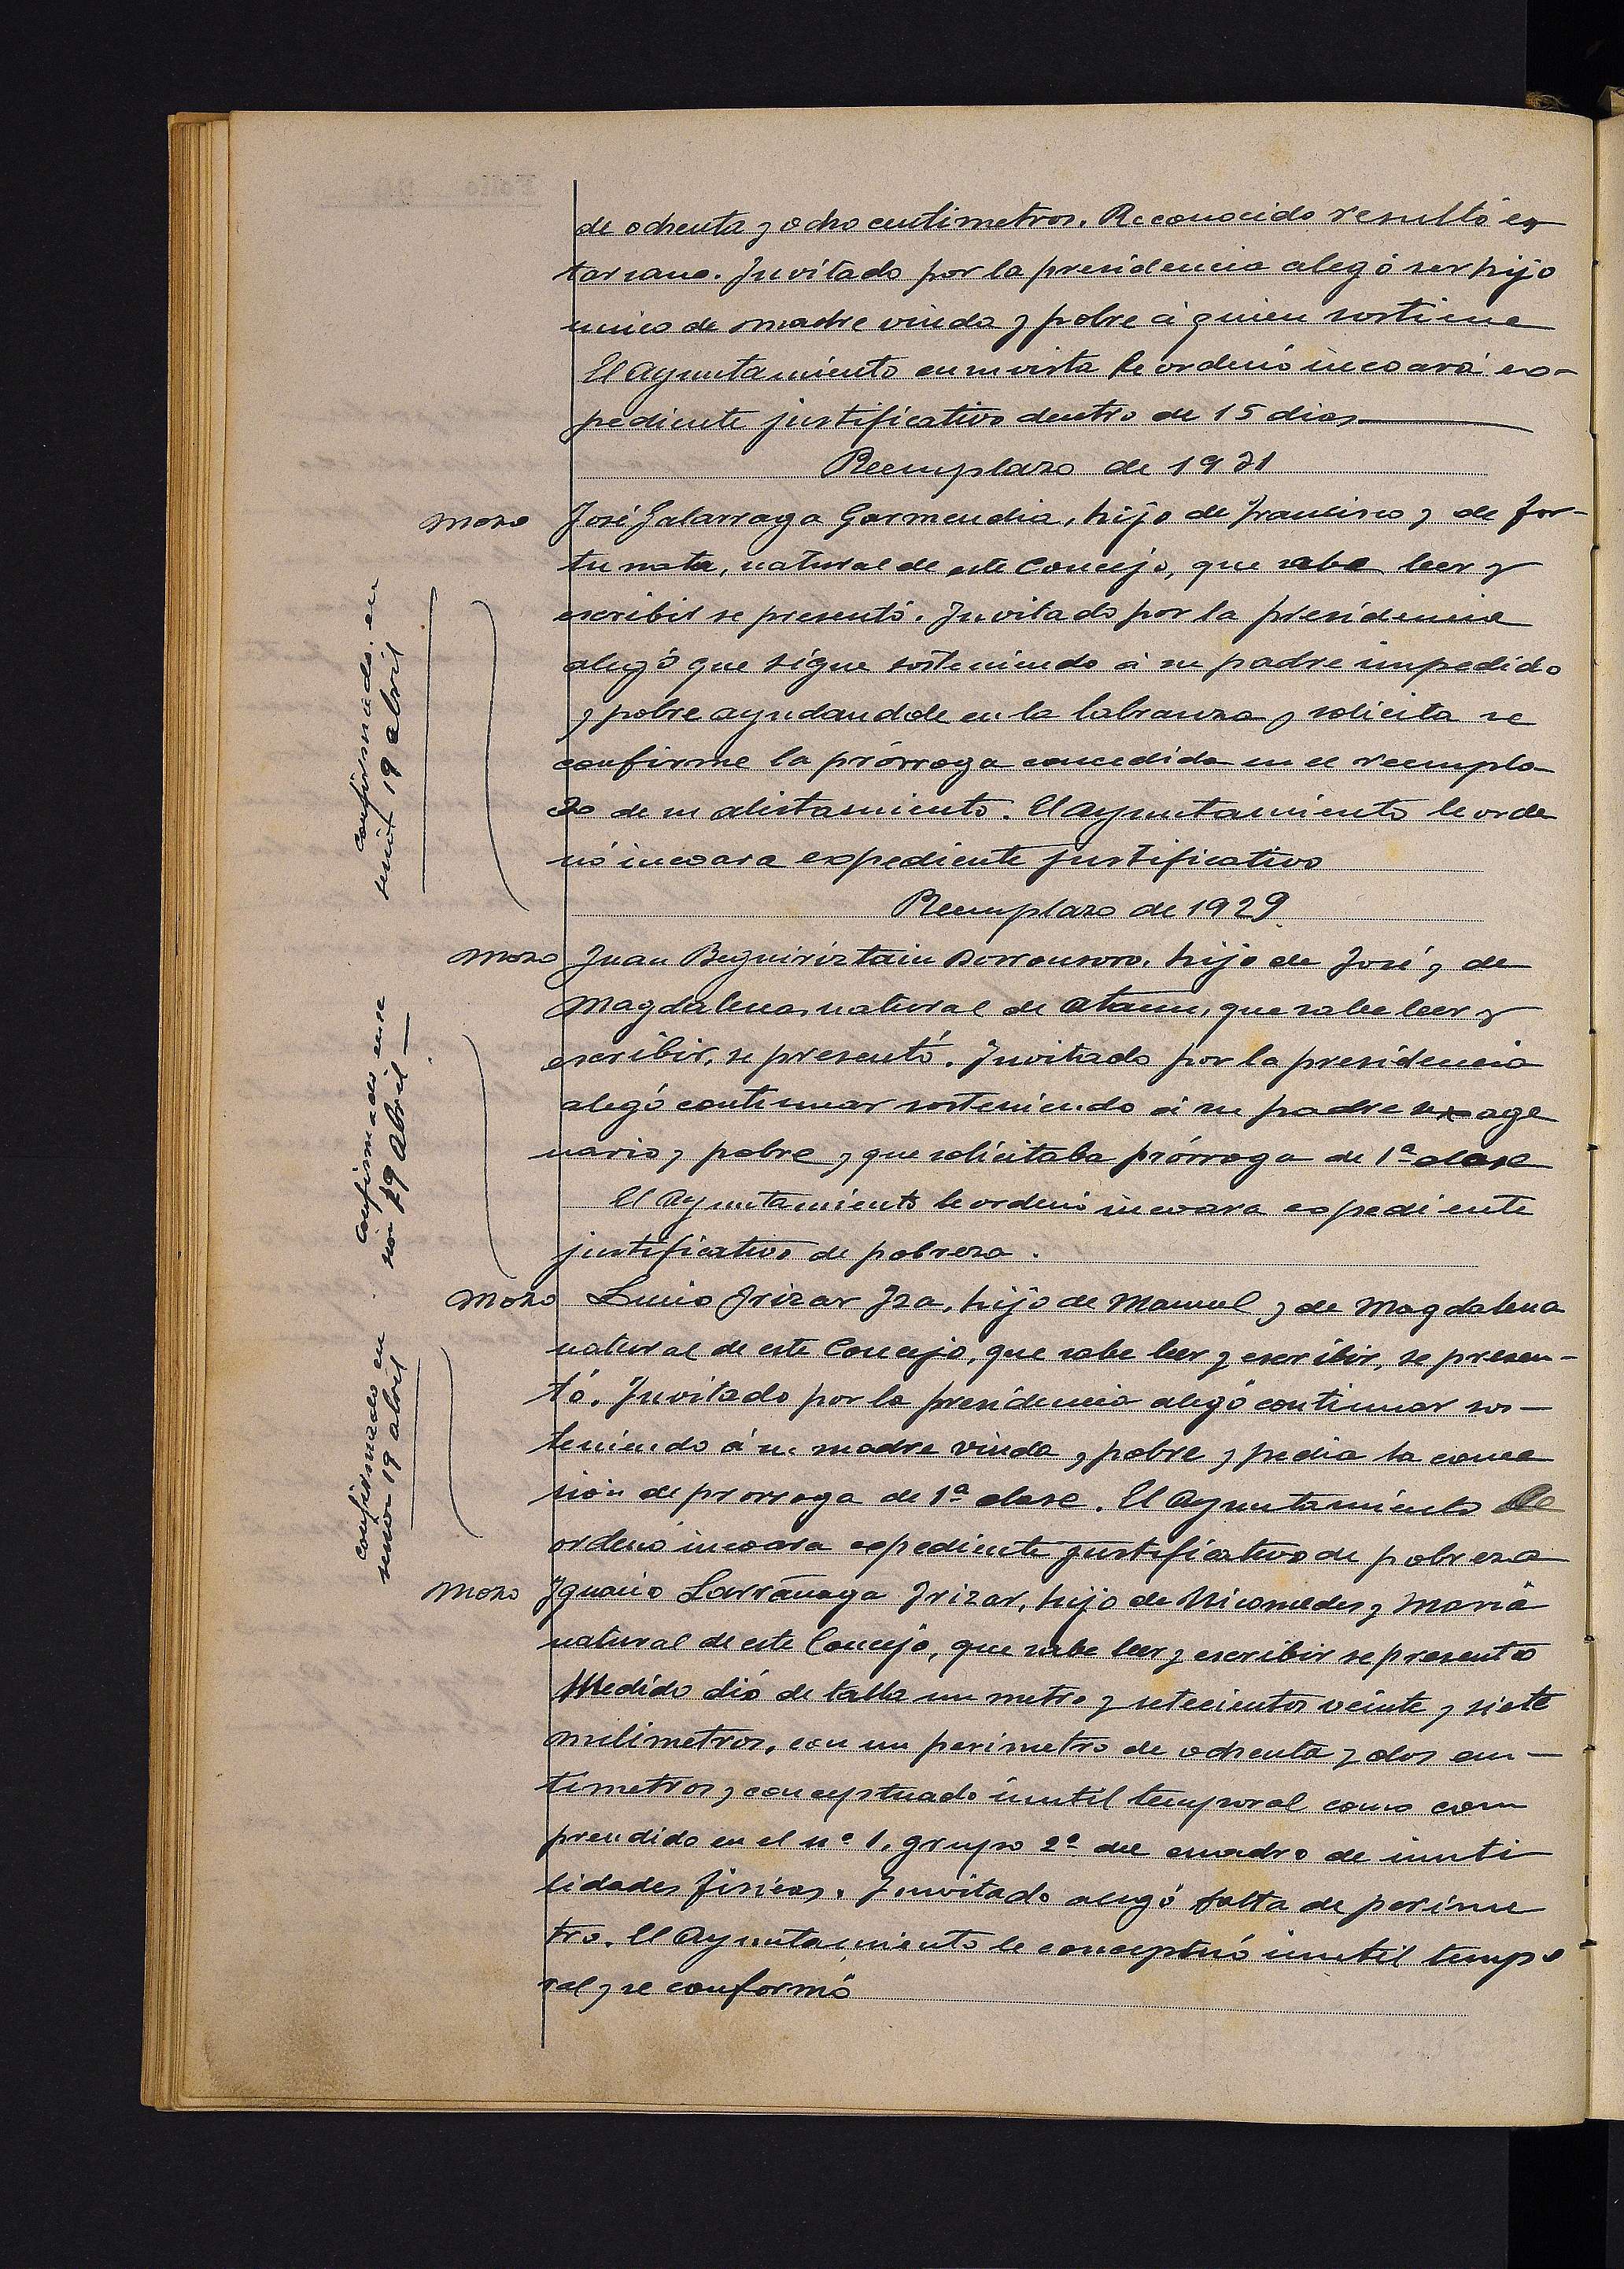 de ochenta y ocho centimetros. Reconocido resultó es
tar sano. Invitado por la presidencia alegó ser hijo
unico de madre viuda y pobre á quien sostiene
El Ayuntamiento en su vista le ordenó incoará ex-
pediente justificativo dentro de 15 dias
Reemplazo de 1931
Mozo José Galarraga Garmendia, hijo de Francisco y de For-
tunata, natural de este Concejo, que sabe leer y
escribir se presentó. Invitado por la presidencia
alegó que sigue sosteniendo á su padre impedido
y pobre ayudandole en la labranza y solicita se
confirme la prórroga concedida en el reempla
zo de su alistamiento. El Ayuntamiento le orde
nó incoara expediente justificativo
confirmado en
sesión 19 abril
Reemplazo de 1929
Mozo Juan Beguiristain Dorronsoro, hijo de José y de
Magdalena, natural de Ataun, que sabe leer y
escribir, se presentó. Invitado por la presidencia
alegó continuar sosteniendo á su padre sexage
nario y pobre y que solicitaba prórroga de 1ª clase
El Ayuntamiento le ordenó incoara expediente
justificativo de pobreza.
confirmado en se
sión 19 Abril
Mozo Lucio Irizar Iza, hijo de Manuel y de Magdalena
natural de este Concejo, que sabe leer y escribir, se presen-
tó. Invitado por la presidencia alegó continuar sos-
teniendo á su madre viuda y pobre y pedia la conce
sión de prorroga de 1ª clase. El Ayuntamiento le
ordenó incoara expediente justificativo de pobreza
confirmado en
sesión 19 abril
Mozo Ignacio Larrañaga Irizar, hijo de Nicomedes y Maria
natural de este Concejo, que sabe leer y escribir se presentó
Medido dió de talla un metro y setecientos veinte y siete
milimetros, con un perimetro de ochenta y dos cen-
timetros y conceptuado inutil temporal como com
prendido en el nº 1, grupo 2º del cuadro de inuti
lidades fisicas. Invitado alegó falta de perime
tro. El Ayuntamiento le conceptuó inutil tempo
ral y se conformó